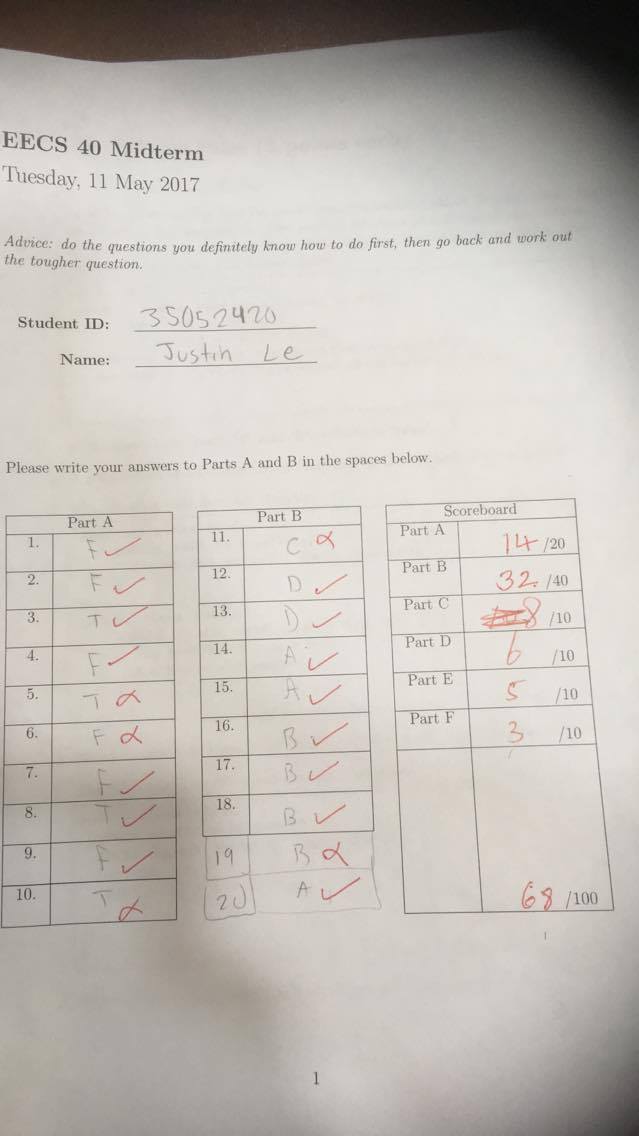 EECS 40 Midterm
Tuesday, 11 May 2017
Advice: do the questions you definitely know how to do first, then go back and work out
the tougher question.
Student ID: 35052420
Name: Justin Le
Please write your answers to Parts A and B in the spaces below.
Part A
1. F ✓
2. F ✓
3. T ✓
4. F ✓
5. T α
6. F α
7. F ✓
8. T ✓
9. F ✓
10. T α
Part B
11. C α
12. D ✓
13. D ✓
14. A ✓
15. A ✓
16. B ✓
17. B ✓
18. B ✓
19 B α
20 A ✓
Scoreboard
Part A 14 /20
Part B 32 /40
Part C 8 /10
Part D 6 /10
Part E 5 /10
Part F 3 /10
68 /100
1